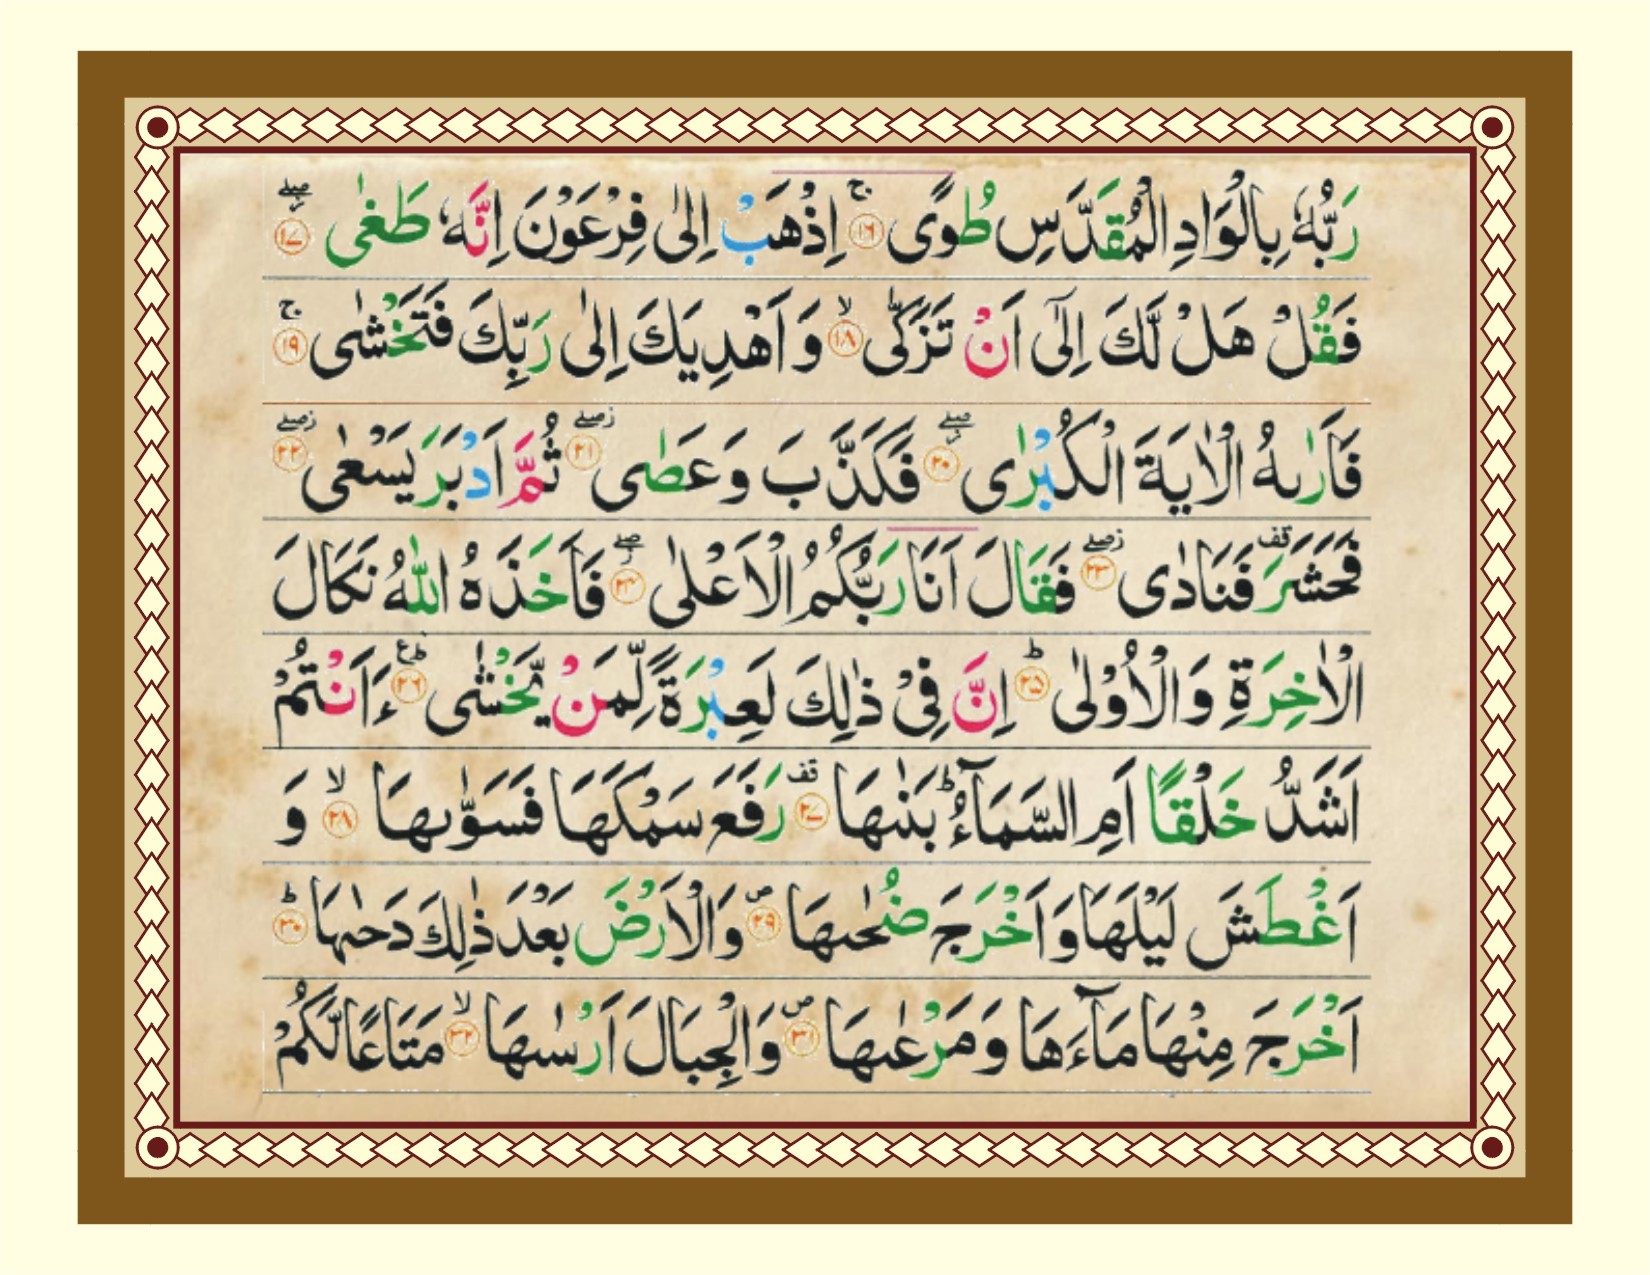 رَبُّهٗ بِالْوَادِ الْمُقَدَّسِ طُوًى ۚ ۱۶ اِذْهَبْ اِلٰى فِرْعَوْنَ اِنَّهٗ طَغٰى ۖ ۱۷
فَقُلْ هَلْ لَّكَ اِلٰٓى اَنْ تَزَكّٰى ۙ ۱۸ وَ اَهْدِيَكَ اِلٰى رَبِّكَ فَتَخْشٰى ۚ ۱۹
فَاَرٰىهُ الْاٰيَةَ الْكُبْرٰى ۖ ۲۰ فَكَذَّبَ وَ عَصٰى ۖ ۲۱ ثُمَّ اَدْبَرَ يَسْعٰى ۖ ۲۲
فَحَشَرَ قف فَنَادٰى ۖ ۲۳ فَقَالَ اَنَا رَبُّكُمُ الْاَعْلٰى ۖ ۲۴ فَاَخَذَهُ اللّٰهُ نَكَالَ
الْاٰخِرَةِ وَ الْاُوْلٰى ؕ ۲۵ اِنَّ فِىْ ذٰلِكَ لَعِبْرَةً لِّمَنْ يَّخْشٰى ؕ ع ۲۶ ءَاَنْتُمْ
اَشَدُّ خَلْقًا اَمِ السَّمَآءُ ؕ بَنٰىهَا قف ۲۷ رَفَعَ سَمْكَهَا فَسَوّٰىهَا ۙ ۲۸ وَ
اَغْطَشَ لَيْلَهَا وَ اَخْرَجَ ضُحٰىهَا ص ۲۹ وَ الْاَرْضَ بَعْدَ ذٰلِكَ دَحٰىهَا ؕ ۳۰
اَخْرَجَ مِنْهَا مَآءَهَا وَ مَرْعٰىهَا ص ۳۱ وَ الْجِبَالَ اَرْسٰىهَا ۙ ۳۲ مَتَاعًا لَّكُمْ